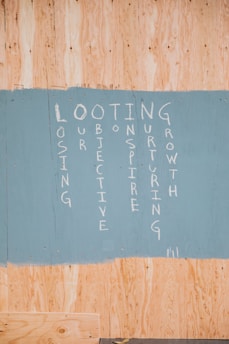 LOOTING
LOSING
OUR
OBJECTIVE
TO
INSPIRE
NURTURING
GROWTH